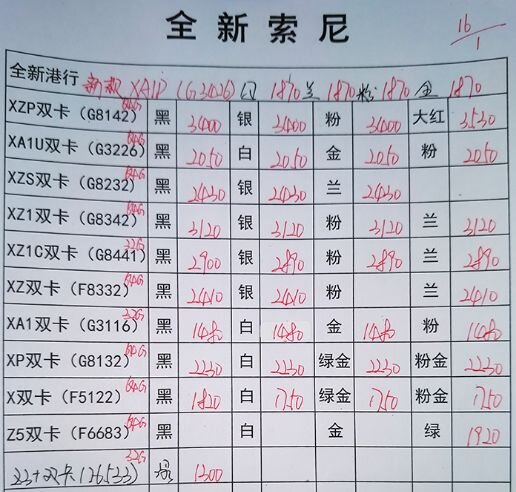 全新索尼
16/1
全新港行 新款 XA1P (G3426) 黑 1870 兰 1870 粉 1870 金 1870
XZP双卡（G8142）64G 黑 3400 银 3400 粉 3400 大红 3530
XA1U双卡（G3226）64G 黑 2050 白 2050 金 2050 粉 2050
XZS双卡（G8232）64G 黑 2430 银 2430 兰 2430
XZ1双卡（G8342）64G 黑 3120 银 3120 粉 3120 兰 3120
XZ1C双卡（G8441）32G 黑 2900 银 2890 粉 2890 兰 2890
XZ双卡（F8332）64G 黑 2410 银 2410 粉 兰 2410
XA1双卡（G3116）32G 黑 1480 白 1480 金 1480 粉 1480
XP双卡（G8132）64G 黑 2230 白 2230 绿金 2230 粉金 2230
X双卡（F5122）64G 黑 1820 白 1750 绿金 1750 粉金 1750
Z5双卡（F6683）黑 白 金 绿 1920
Z3+双卡 (E6533) 32G 1300